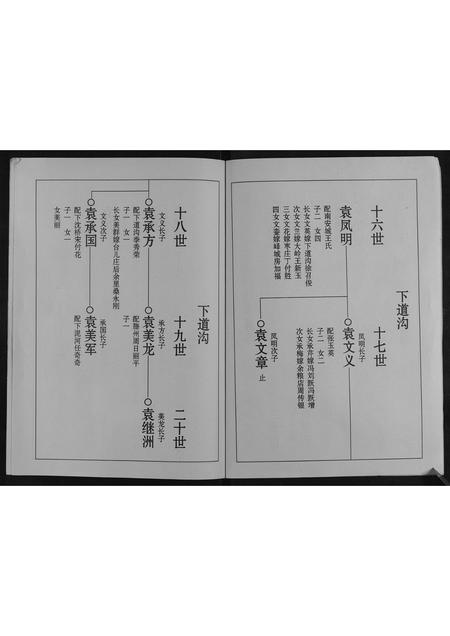 下道沟
十六世
袁凤明
配南安城王氏
子二 女四
长女文英嫁下道沟徐召俊
次女文兰嫁大岭王新玉
三女文花嫁枣庄丁付胜
四女文銮嫁峄城房加福
十七世
袁文义
凤明长子
配张玉英
子二 女二
长女承芹嫁冯刘跃冯跃增
次女承梅嫁余粮店周传银
袁文章
凤明次子
止
下道沟
十八世
袁承方
文义长子
配下道沟李秀荣
子一 女一
长女美群嫁台儿庄后余里桑永刚
袁承国
文义次子
配下沈桥宋付花
子一 女一
女美丽
十九世
袁美龙
承方长子
配滕州周日丽平
子一
袁美军
承国长子
配下泥河任奇奇
二十世
袁继洲
美龙长子